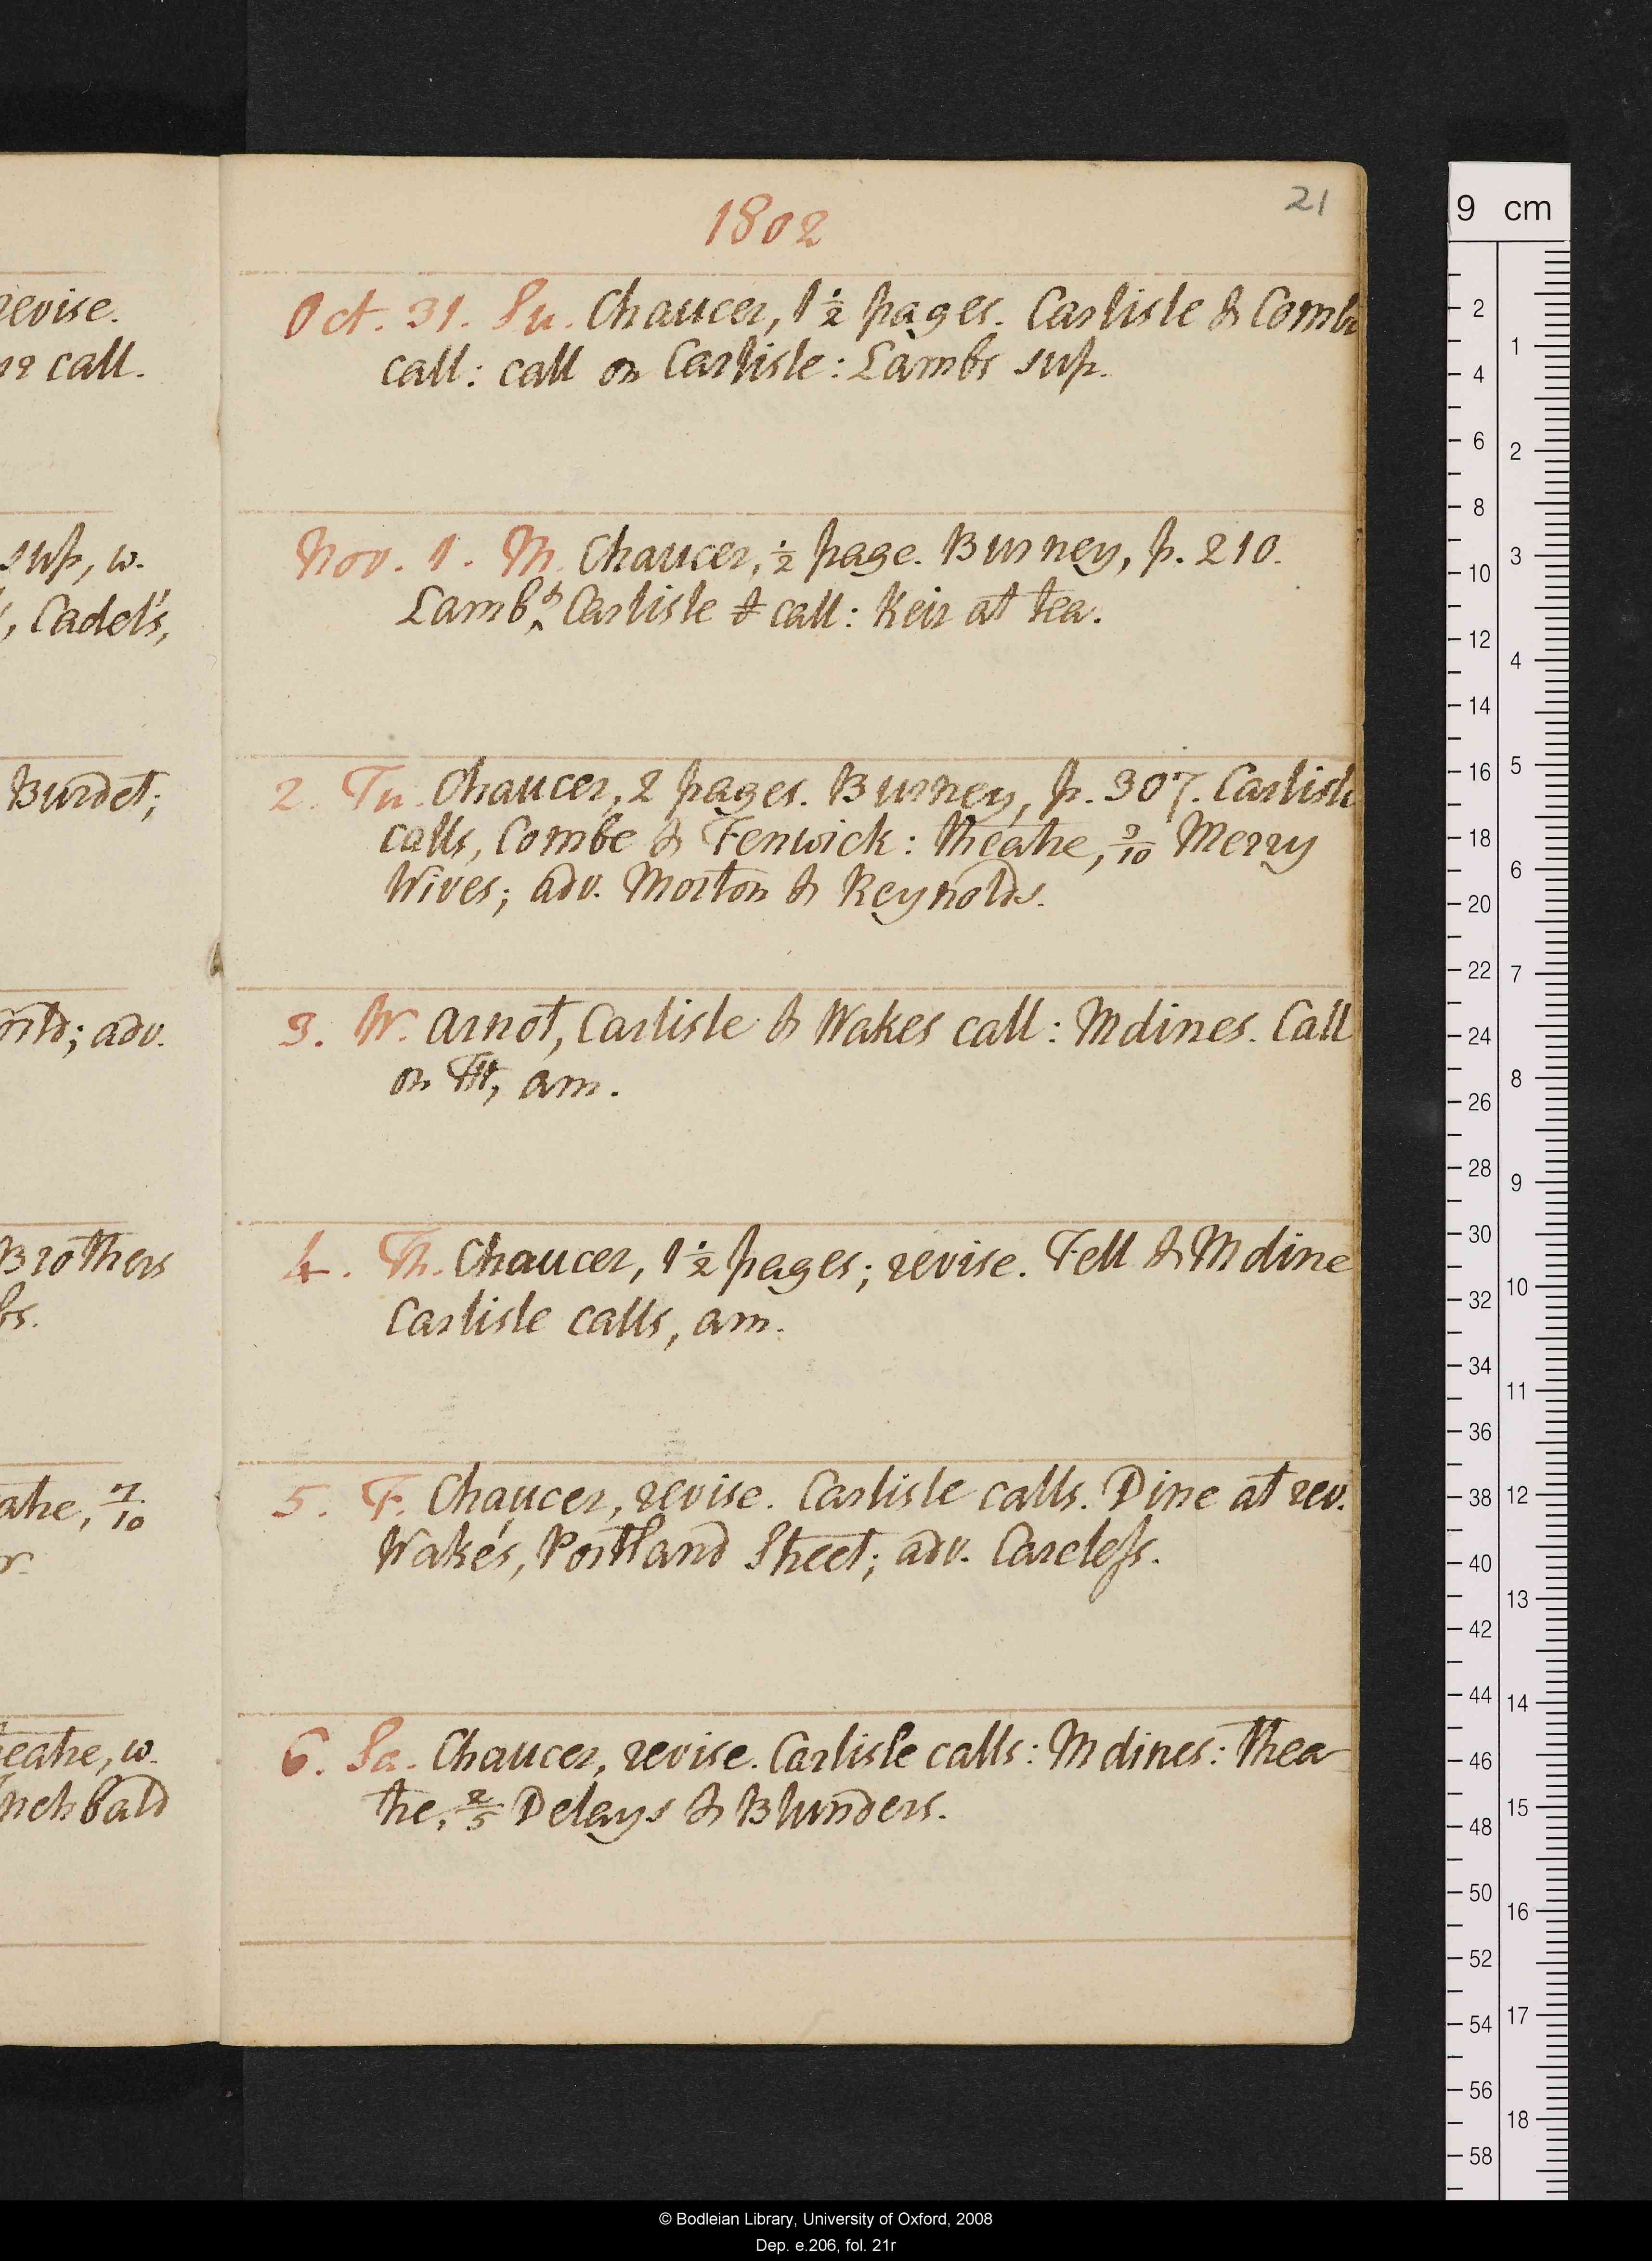 21
1802
revise.
call.
sup, w.
Cadel's,
Burdet;
adv.
Brothers
7/10
w.
nchbald
Oct. 31. Su. Chaucer, 1 1/2 pages. Carlisle & Combe
call: call on Carlisle: Lambs sup.
Nov. 1. M. Chaucer, 1/2 page. Burney, p. 210.
Lamb & Carlisle call: Keir at tea.
2. Tu. Chaucer, 2 pages. Burney, p. 307. Carlisle
calls, Combe & Fenwick: theatre, 3/10 Merry
Wives; adv. Morton & Reynolds.
3. W. Arnot, Carlisle & Wakes call: M dines. Call
on TT, am.
4. Th. Chaucer, 1 1/2 pages; revise. Fell & M dine
Carlisle calls, am.
5. F. Chaucer, revise. Carlisle calls. Dine at rev.
Wake's, Portland Street; adv. Careless.
6. Sa. Chaucer, revise. Carlisle calls: M dines: thea-
tre, 2/5 Delays & Blunders.
9 cm
2
4
6
8
10
12
14
16
18
20
22
24
26
28
30
32
34
36
38
40
42
44
46
48
50
52
54
56
58
1
2
3
4
5
6
7
8
9
10
11
12
13
14
15
16
17
18
© Bodleian Library, University of Oxford, 2008
Dep. e.206, fol. 21r